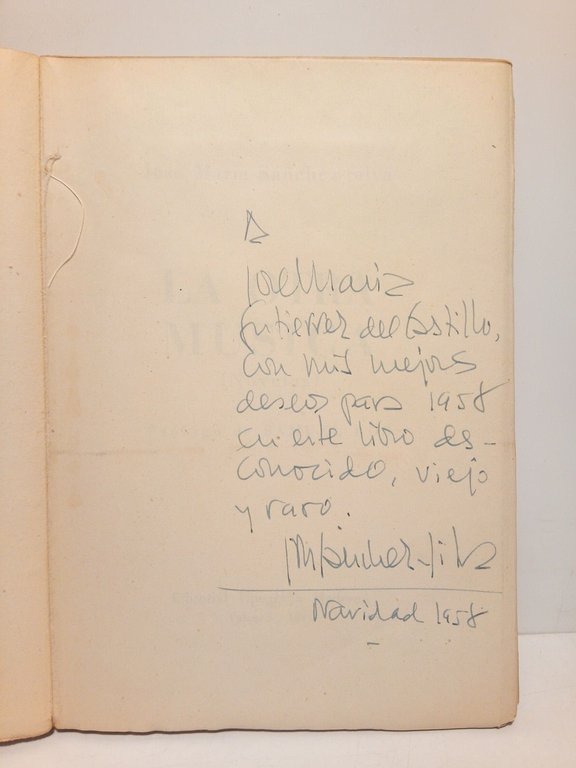 A
José María
Gutiérrez del Castillo,
con mis mejores
deseos para 1958
en este libro des-
conocido, viejo
y raro.
JMSánchez-Silva
Navidad 1958
José María Sánchez-Silva
LA OTRA
MÚSICA